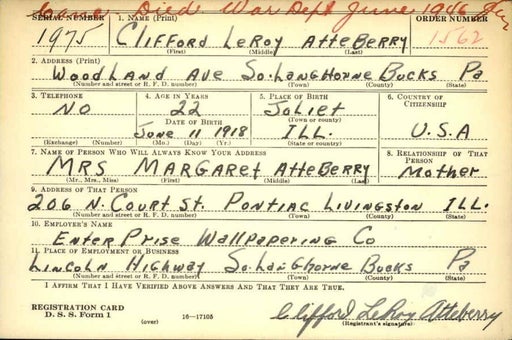 Died War Dept June 1946
SERIAL NUMBER 1. NAME (Print) ORDER NUMBER
1975 CLIFFORD LEROY AtteBERRY 1562
(First) (Middle) (Last)
2. ADDRESS (Print)
WOODLAND AVE SO. LANGHORNE BUCKS Pa
(Number and street or R. F. D. number) (Town) (County) (State)
3. TELEPHONE 4. AGE IN YEARS 5. PLACE OF BIRTH 6. COUNTRY OF CITIZENSHIP
NO 22 JOLIET
DATE OF BIRTH (Town or county)
JUNE 11 1918 ILL. U.S.A
(Exchange) (Number) (Mo.) (Day) (Yr.) (State or country)
7. NAME OF PERSON WHO WILL ALWAYS KNOW YOUR ADDRESS 8. RELATIONSHIP OF THAT PERSON
MRS MARGARET AtteBERRY Mother
(Mr., Mrs., Miss) (First) (Middle) (Last)
9. ADDRESS OF THAT PERSON
206 N. COURT ST. PONTIAC LIVINGSTON ILL.
(Number and street or R. F. D. number) (Town) (County) (State)
10. EMPLOYER'S NAME
EnterPrise Wallpapering Co
11. PLACE OF EMPLOYMENT OR BUSINESS
LINCOLN HIGHWAY So. Langhorne Bucks Pa
(Number and street or R. F. D. number) (Town) (County) (State)
I AFFIRM THAT I HAVE VERIFIED ABOVE ANSWERS AND THAT THEY ARE TRUE.
REGISTRATION CARD
D. S. S. Form 1 (over) 16—17105 Clifford LeRoy Atteberry
(Registrant's signature)